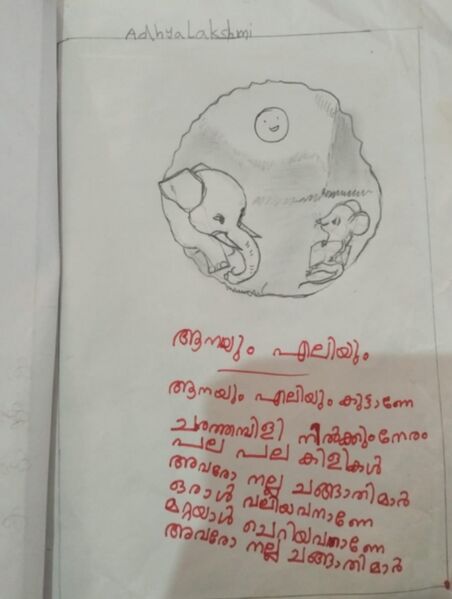 AdhyaLakshmi
ആനയും എലിയും
ആനയും എലിയും കൂട്ടാണേ
ചന്തമ്പിളി നിൽക്കുംനേരം
പല പല കിളികൾ
അവരോ നല്ല ചങ്ങാതിമാർ
ഒരാൾ വലിയവനാണേ
മറ്റയാൾ ചെറിയവനാണേ
അവരോ നല്ല ചങ്ങാതിമാർ